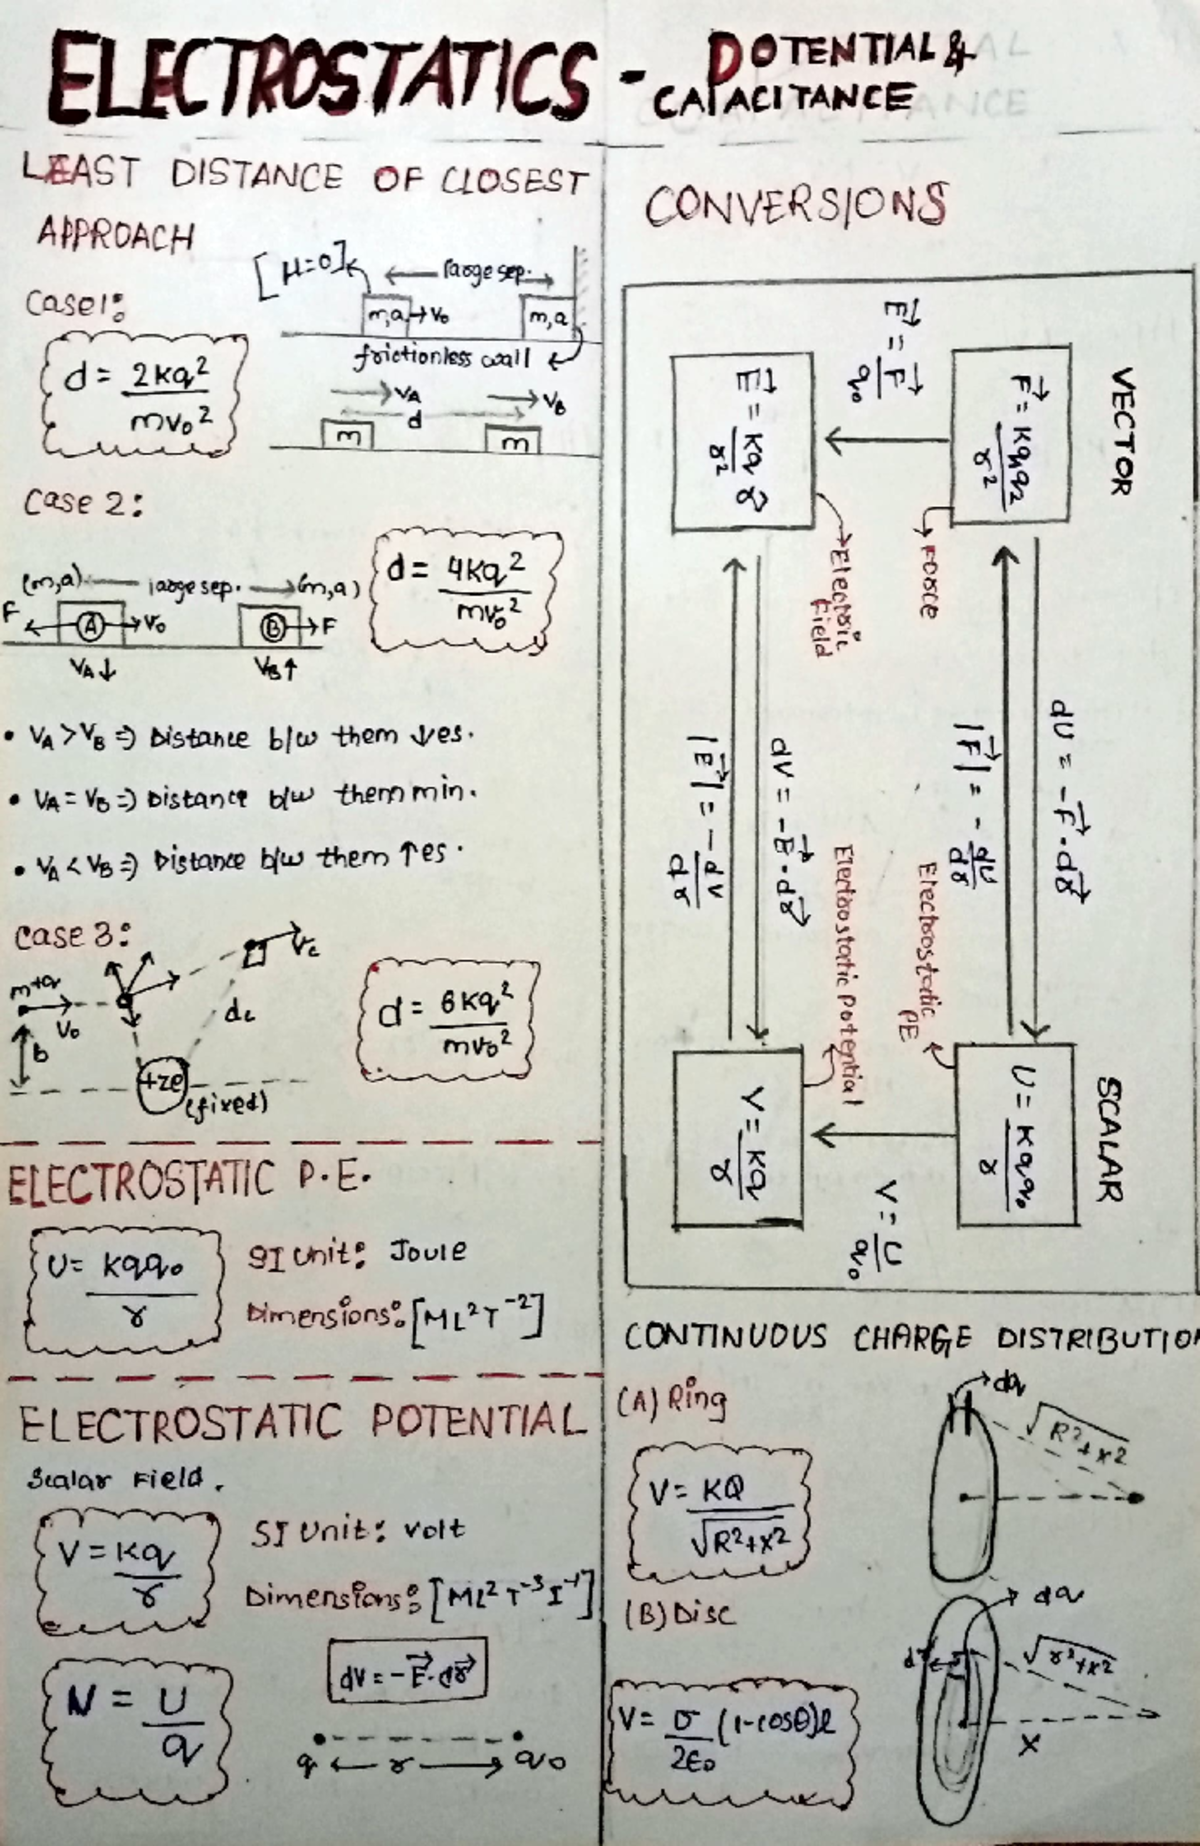 ELECTROSTATICS - POTENTIAL &
CAPACITANCE
LEAST DISTANCE OF CLOSEST
APPROACH
[μ=0]
large sep.
Case 1:
m,q → v₀
m,q
frictionless wall
d = 2kq² / mv₀²
V_A
V_B
d
m
m
Case 2:
(m,q) large sep. (m,q)
F A V₀ B F
V_A↓ V_B↑
d = 4kq² / mv₀²
• V_A > V_B ⇒ Distance b/w them ↓es.
• V_A = V_B ⇒ Distance b/w them min.
• V_A < V_B ⇒ Distance b/w them ↑es.
Case 3:
m+q
v₀
b
V_c
d_c
+ze
(fixed)
d = 6kq² / mv₀²
ELECTROSTATIC P.E.
U = kqq₀ / r
SI Unit: Joule
Dimensions: [ML²T⁻²]
ELECTROSTATIC POTENTIAL
Scalar Field.
V = kq / r
SI Unit: volt
Dimensions: [ML²T⁻³I⁻¹]
N = U / q
dv = -E⃗·dr⃗
q ← r → q₀
CONVERSIONS
VECTOR
F⃗ = kq₁q₂ / r²
Force
E⃗ = F⃗ / q₀
E⃗ = kq / r² r̂
Electric Field
dU = -F⃗·dr⃗
|F⃗| = - dU / dr
dV = -E⃗·dr⃗
|E⃗| = - dv / dr
SCALAR
Electrostatic PE
U = kqq₀ / r
Electrostatic Potential
V = kq / r
V = U / q₀
CONTINUOUS CHARGE DISTRIBUTION
(A) Ring
dq
√R²+x²
V = KQ / √R²+x²
(B) Disc
dq
√r²+x²
x
V = σ / 2ε₀ (1-cosθ)l